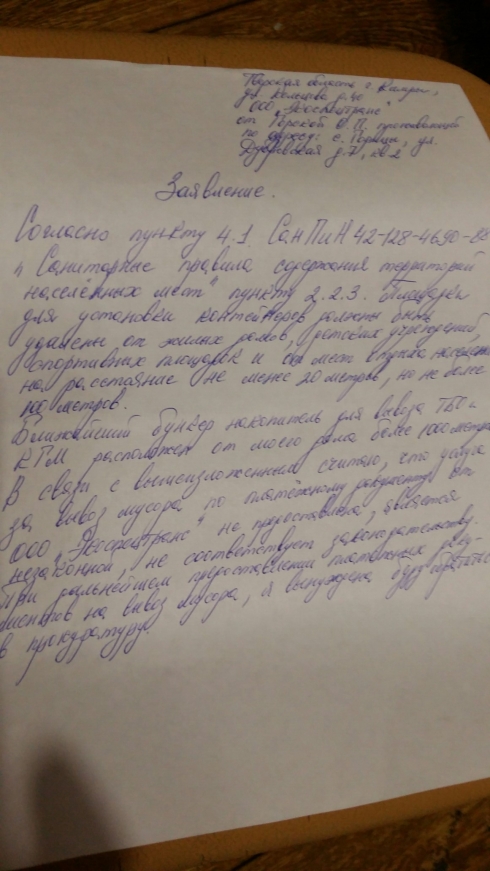 Тверская область г. Кимры,
ул. Кольцова д. 40
ООО "Экоспецтранс"
от Горской О. П. проживающей
по адресу: с. Горицы, ул.
д. 7, кв 2
Заявление.
Согласно пункту 4.1. СанПиН 42-128-4690-88
"Санитарные правила содержания территорий
населённых мест" пункту 2.2.3. Площадки
для установки контейнеров должны быть
удалены от жилых домов, детских учреждений,
спортивных площадок и от мест отдыха населения
на расстояние не менее 20 метров, но не более
100 метров.
Ближайший бункер накопитель для вывоза ТБО и
КГМ расположен от моего дома более 1000 метров
В связи с вышеизложенным считаю, что услуга
за вывоз мусора по платёжному документу от
ООО "Экоспецтранс" не предоставлена, является
незаконной, не соответствует законодательству.
При дальнейшем предоставлении платежных доку-
ментов на вывоз мусора, я вынуждена буду обратиться
в прокуратуру.